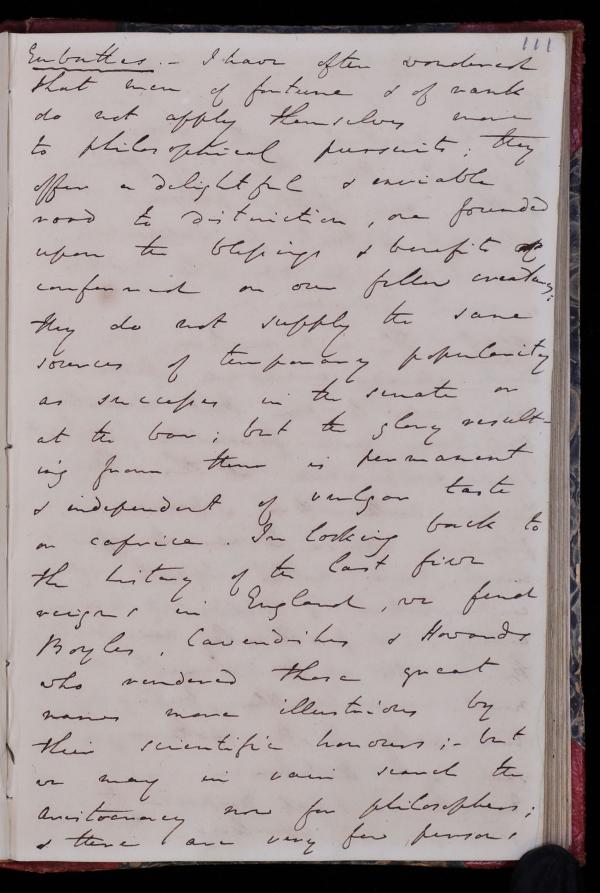 111
Eubathes. - I have often wondered
that men of fortune & of rank
do not apply themselves more
to philosophical pursuits; they
offer a delightful & enviable
road to distinction, one founded
upon the blessings & benefits
conferred on our fellow creatures;
they do not supply the same
sources of temporary popularity
as successes in the senate or
at the bar; but the glory result-
ing from them is permanent
& independent of vulgar taste
or caprice. In looking back to
the history of the last five
reigns in England, we find
Boyles, Cavendishes & Howards
who rendered those great
names more illustrious by
their scientific honours; - but
we may in vain search the
aristocracy now for philosophers;
& there are very few persons